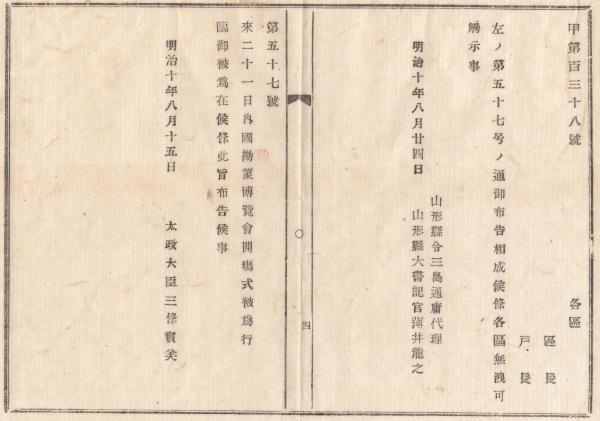 甲第百三十八號
各區
區長
戸長
左ノ第五十七号ノ通御布告相成候條各區無洩可
觸示事
明治十年八月廿四日
山形縣令三島通庸代理
山形縣大書記官薄井龍之
四
第五十七號
來二十一日內國勸業博覽會開場式被爲行
臨御被爲在候條此旨布告候事
明治十年八月十五日
太政大臣三條實美